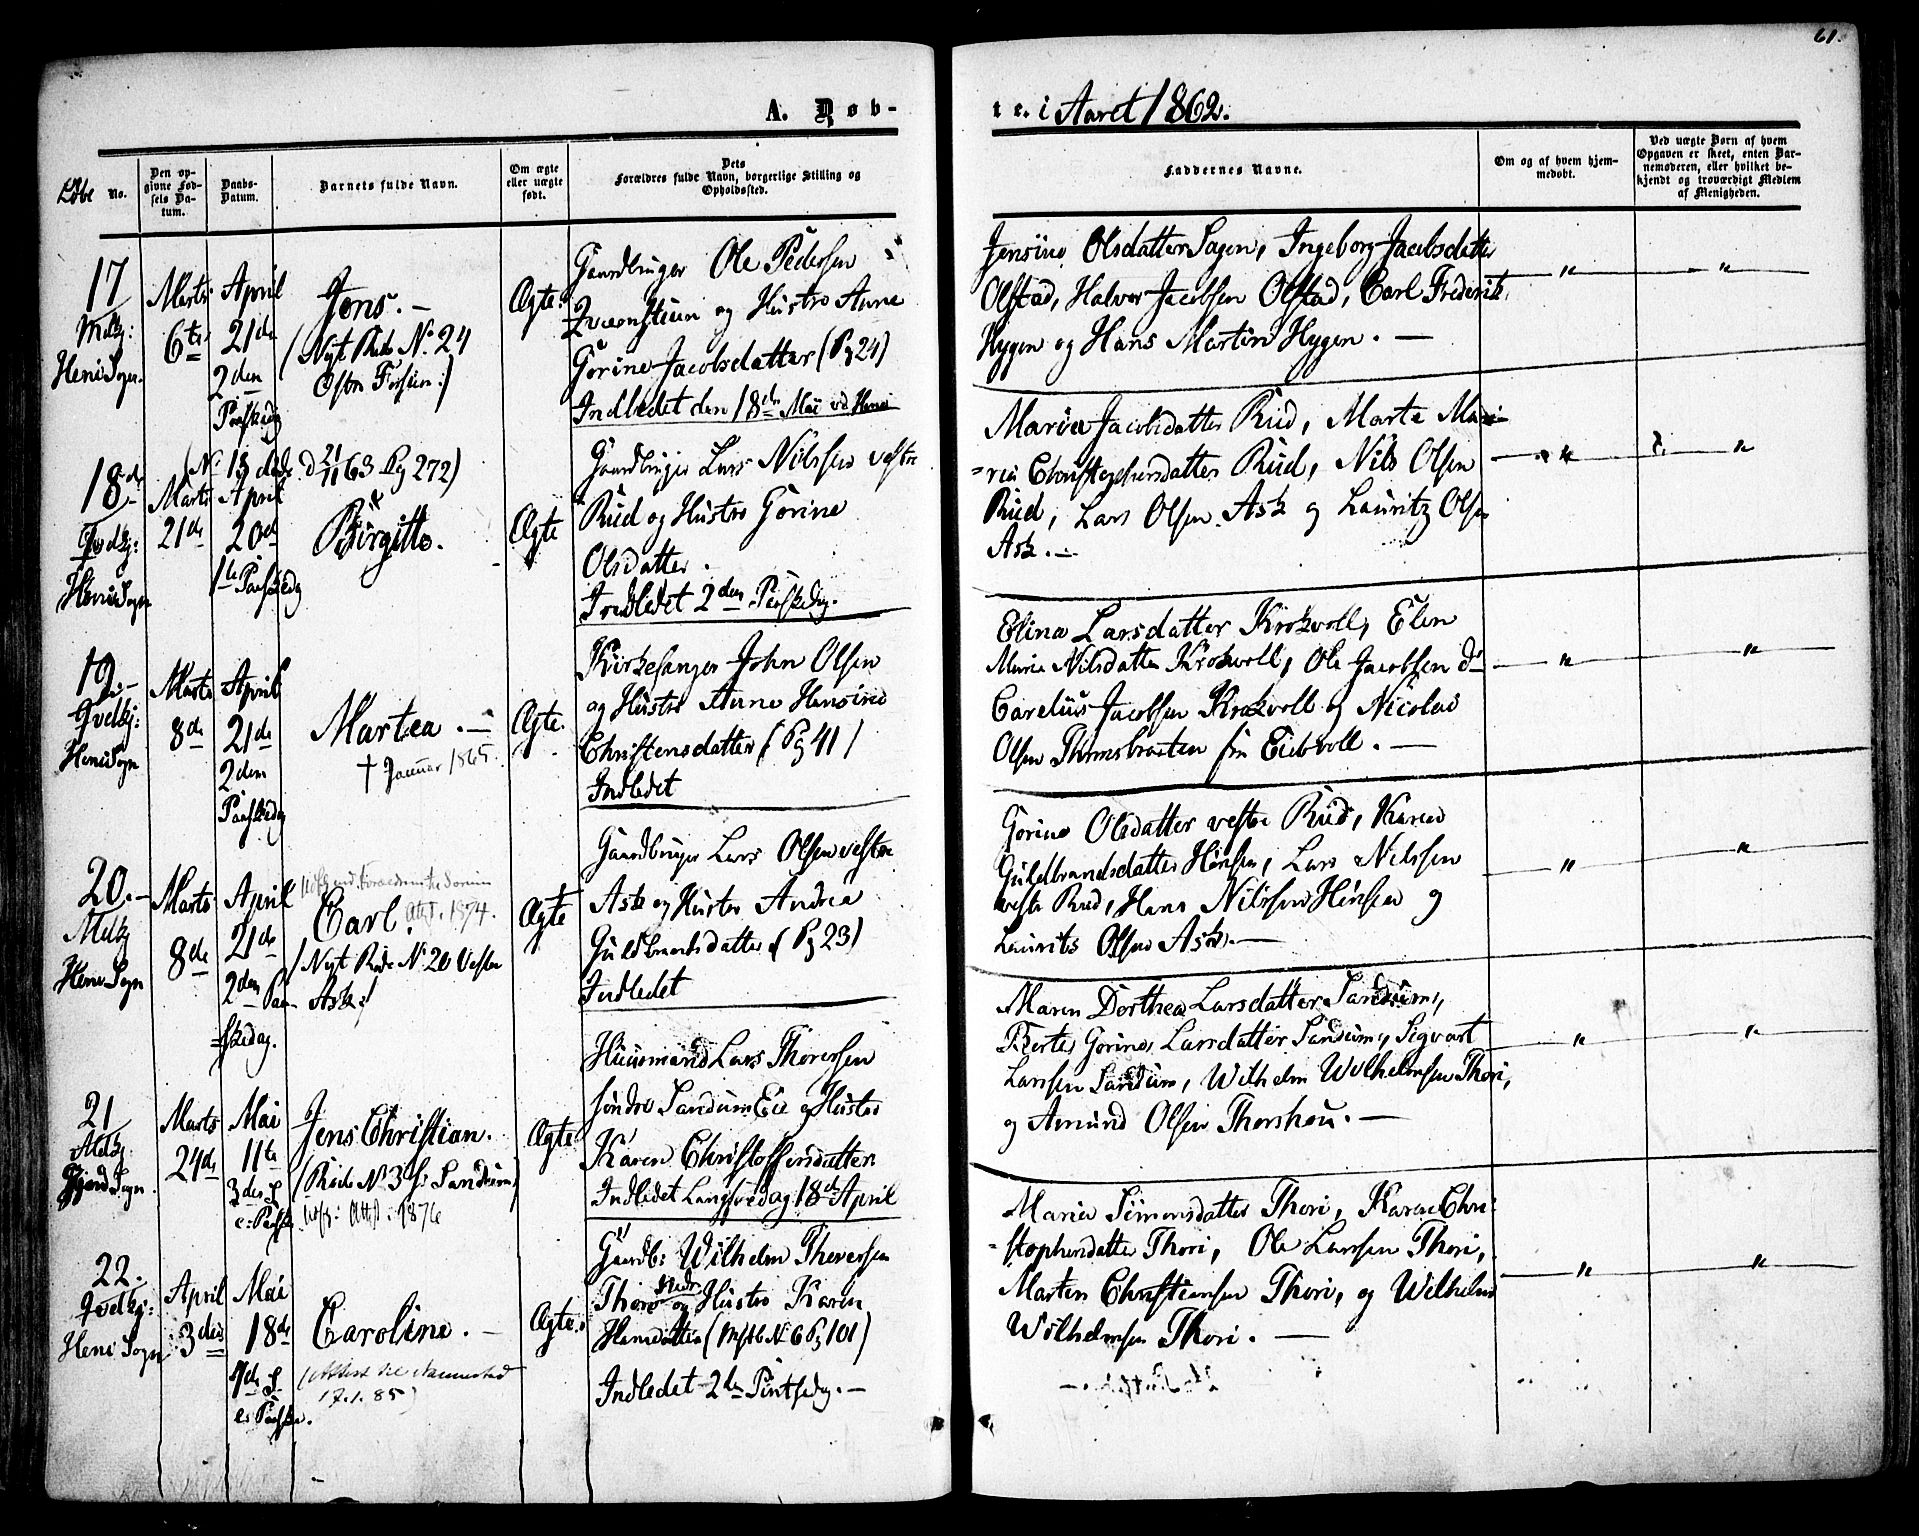 61.
A. Døb-
te. i Aaret 1862.
Løbe No.
Den op-
givne Fød-
sels Da-
tum.
Daabs-
Datum.
Barnets fulde Navn.
Om ægte
eller uægte
født.
Dets
Forældres fulde Navn, borgerlige Stilling og
Opholdssted.
Faddernes Navne.
Om og af hvem hjem-
medøbt.
Ved uægte Børn af hvem
Opgaven er skeet, enten Bar-
nemoderen, eller hvilket be-
kjendt og troværdigt Medlem
af Menigheden.
17
Heni Sogn.
Marts
6te
April
21de
2den
Paaskedag
Jens. —
(Nyt Rode No. 24
Ægte.
Gaardbruger Ole Pedersen
og Hustro Anne
Gorine Jacobsdatter (Pg 24)
Indledet den 18de Mai ved Heni
Jensine Olsdatter Sagen, Ingeborg Jacobsdatter
Olstad, Halvor Jacobsen Olstad, Carl Frederik
Hygen og Hans Martin Hygen. —
" "
18de
Heni Sogn
Marts
21de
April
20de
1te Paaskedag
63 Pg 272)
Birgitte.
Ægte
Gaardbruger Lars Nilssen vestre
Rud og Hustro Gorine
Olsdatter.
Indledet 2den Paaskedag.
Maria Jacobsdatter Rud, Marte Ma-
=ria Christophersdatter Rud, Nils Olsen
Rud, Lars Olsen Ask og Lauritz Olsen
Ask. —
" "
19. —
Heni Sogn
Marts
8de
April
21de
2den
Paaskedag
Martea. —
† Januar 1865.
Ægte.
Kirkesanger John Olsen
og Hustro Anne Hensine
Christensdatter (Pg 41)
Indledet
Elina Larsdatter Krokvoll, Elen
Maria Nilsdatter Krokvoll, Ole Jacobsen
Carelius Jacobsen Krokvoll og Nicolai
Olsen fra Eidsvoll. —
" "
20. —
Heni Sogn
Marts
8de
April
21de
2den Paa-
=skedag.
Carl. Att. 1874.
(Nyt Rode No. 20 Vestre
Ask)
Ægte
Gaardbruger Lars Olsen vestre
Ask og Hustro Andrea
Guldbrandsdatter (Pg 23)
Indledet
Gorine Olsdatter vestre Rud, Karen
Guldbrandsdatter Hønsen, Lars Nilssen
vestre Rud, Hans Nilssen Hønsen og
Laurits Olsen Ask. —
" "
21
Marts
24de
Mai
11te
3die S.
e: Paaske
Jens Christian.
(Rode No. 3 S: Sandum)
Att. 1876
Ægte
Huusmand Lars Thoversen
søndre Sandum Eie og Hustro
Karen Christoffersdatter
Indledet Langfredag 18de April
Maren Dorthea Larsdatter Sandum,
Gorine Larsdatter Sandum, Sigvart
Larsen Sandum, Wilhelm Wilhelmsen Thori,
og Amund Olsen Thorshou. —
" "
22.
Heni Sogn
April
3die
Mai
18de
4de S.
e: Paaske.
Caroline. —
(Attest til Nannestad
17.1.85)
Ægte.
Gaardb: Wilhelm Thoversen
Thori nedre og Hustro Karen
Hansdatter (Mstb No 6 Pg 101)
Indledet 2den Pintsedag. —
Maria Simensdatter Thori, Karen Chri-
=stophersdatter Thori, Ole Larssen Thori,
Marten Christiansen Thori, og Wilhelm
Wilhelmsen Thori. —
" "